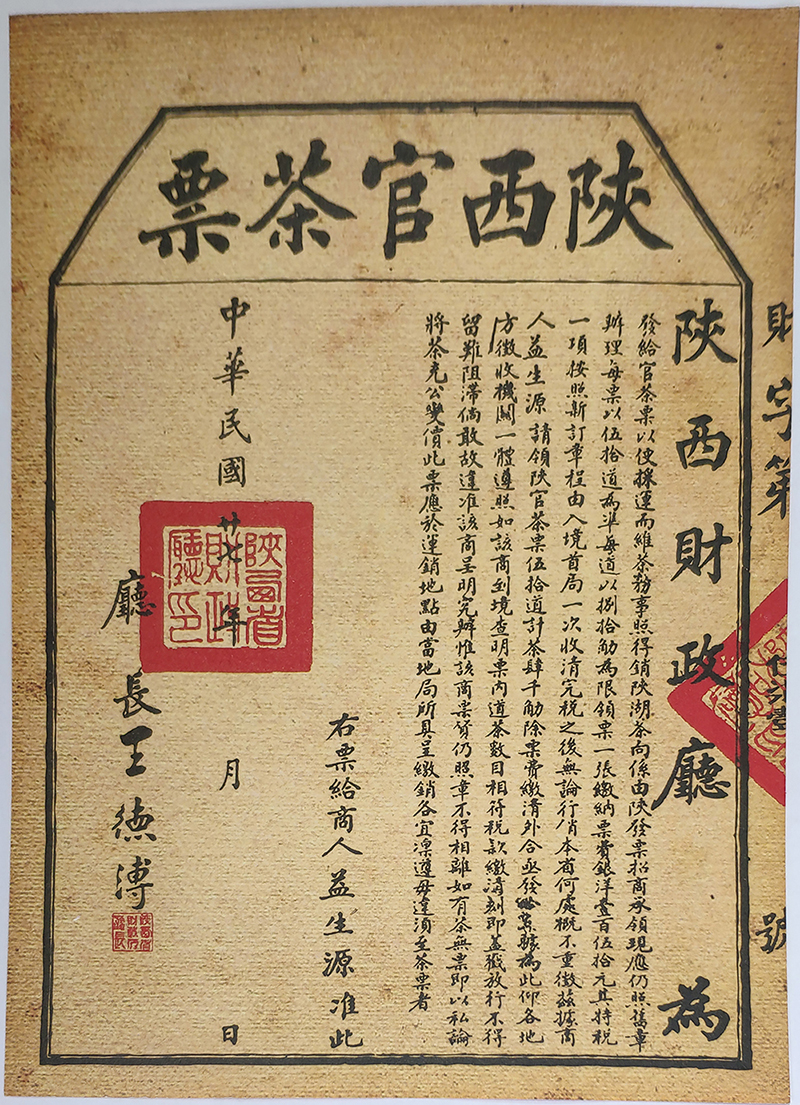 陝西官茶票
財字第 號
陝西財政廳 為
發給官茶票以便採運而維茶務事照得銷陝湖茶向係由陝發票招商承領現應仍照舊章
辦理每票以伍拾道為準每道以捌拾觔為限領票一張繳納票費銀洋壹百伍拾元其特税
一項按照新訂章程由入境首局一次收清完税之後無論行銷本省何處概不重徵茲據商
人益生源請領陝官茶票伍拾道計茶肆千觔除票費繳清外合亟發給票據為此仰各地
方徵收機關一體遵照如該商到境查明票內道茶數目相符税款繳清刻即蓋戳放行不得
留難阻滯倘敢故違准該商呈明究辦惟該商票貨仍照章不得相離如有茶無票即以私論
將茶充公變價此票應於運銷地點由當地局所具呈繳銷各宜凜遵毋違須至茶票者
右票給商人益生源准此
中華民國廿七年 月 日
陝西省財政廳印
廳長王德溥
陝西省財政廳廳長